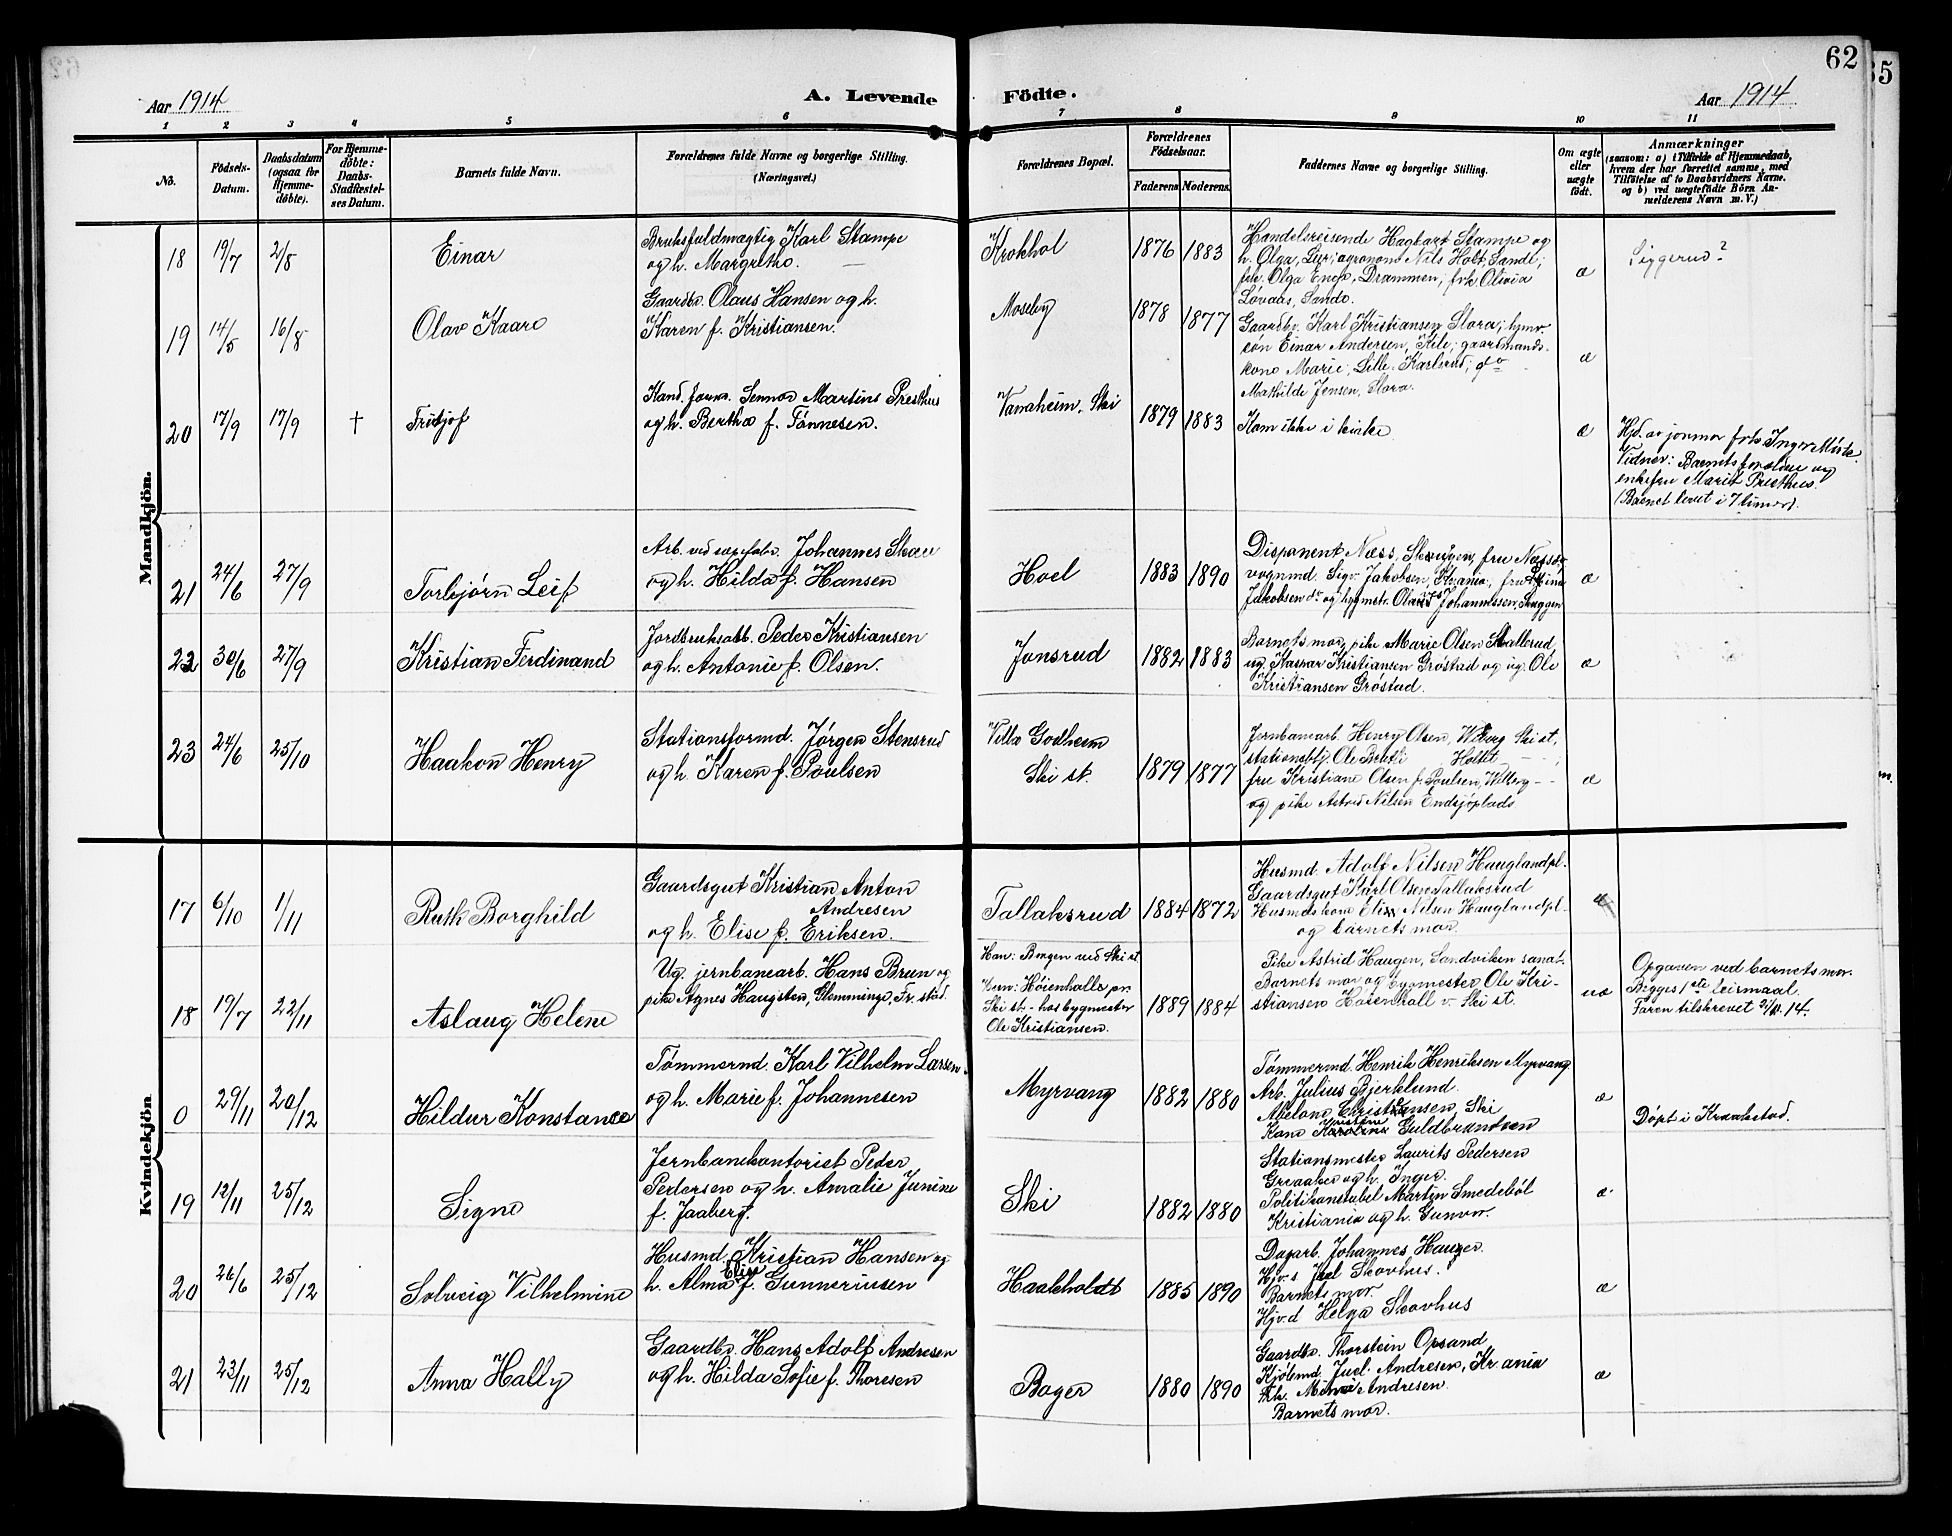 62
Aar 1914
A. Levende Födte.
Aar 1914
1 2 3 4 5 6 7 8 9 10 11
No.
Födsels-Datum.
Daabsdatum (ogsaa for Hjemme-döbte).
For Hjemme-döbte: Daabs-Stadfæstel-ses Datum.
Barnets fulde Navn.
Forældrenes fulde Navne og borgerlige Stilling. (Næringsvei.)
Forældrenes Bopæl.
Forældrenes Födselsaar.
Faderens Moderens
Faddernes Navne og borgerlige Stilling.
Om ægte eller uægte födt.
Anmærkninger
(saasom: a) i Tilfælde af Hjemmedaab,
hvem der har forrettet samme, med
Tilföielse af to Daabsvidners Navne.
og b) ved uægtefödte Börn An-
melderens Navn m. V.)
Mandkjön.
18 19/7 2/8 Einar
Bruksfuldmægtig Karl Stampe
og h. Margrethe.
Krokhol 1876 1883
Handelsreisende Hagbart Stampe og
h. Olga, Lyr; agronom Nils Holt, Sande;
frk. Olga Engo, Drammen; frk Olivia
Løvaas, Sande.
æ
Siggerud?
19 14/5 16/8 Olav Kaare
Gaardbr. Olaus Hansen og h.
Karen f. Kristiansen.
Moseby 1878 1877
Gaardbr. Karl Kristiansen Slora; hjemv.
søn Einar Andersen, Kile; gaardmands-
kone Marie, Lille-Karlsrud; do
Mathilde Jensen, Slora.
æ
20 17/9 17/9 † Fritjof
Kand. farm. Sennov Martins Presthus
og h. Bertha f. Tønnesen.
Vanaheim, Ski 1879 1883
Kom ikke i kirke
æ
Hjd. av jormor frk Inger Mørk.
Vidner: Barnets forældre og
enkefru Marit Presthus.
(Barnet levet i 7 timer).
21 24/6 27/9 Torbjørn Leif
Arb. ved Johannes Skau
og h. Hilda f. Hansen
Hoel 1883 1890
Disponent Næss, Skuggen, fru Næss do
vognmd. Sigv. Jakobsen, Kr.ania, fru
Jakobsen do og bygmstr. Johannessen, Skuggen
æ
22 30/6 27/9 Kristian Ferdinand
Jordbruksarb. Peder Kristiansen
og h. Antonie f. Olsen.
Jonsrud 1882 1883
Barnets mor, pike Marie Olsen Skallerud,
ug. Kaspar Kristiansen Grøstad og ug. Ole
Kristiansen Grøstad.
æ
23 24/6 25/10 Haakon Henry
Stationsformd. Jørgen Stensrud
og h. Karen f. Poulsen
Villa Godheim
Ski st.
1879 1877
Jernbanearb. Henry Olsen, Wiberg Ski st,
stationsbtj. Ole Holtet - - ;
fru Kristiane Olsen f. Poulsen, Wiberg - -
og pike Astrid Nilsen Endsjøplads
æ
Kvindekjön
17 6/10 1/11 Ruth Borghild
Gaardsgut Kristian Anton
Andresen
og h. Elise f. Eriksen.
Tallaksrud 1884 1872
Husmd. Adolf Nilsen Hauglandpl.
Gaardsgut Karl Olsen Tallaksrud
Husmdskone Elise Nilsen Hauglandpl-
og barnets mor
æ
18 19/7 22/11 Aslaug Helene
Ug. jernbanearb. Hans Brun og
pike Agnes Haugsten, Glemminge, Fr.stad.
Han: Borgen ved Ski st
Hun: Høienhalle pr.
Ski st. - hos bygmester
Ole Kristiansen.
1889 1884
Pike Astrid Haugen, Sandviken sanat.
Barnets mor og bygmester Ole Kri-
stiansen Høienhall v. Ski st.
uæ
Opgaven ved barnets mor.
Begges 1ste leirmaal.
Faren tilskrevet 2/12.14.
0 29/11 20/12 Hildur Konstance
Tømmermd. Karl Vilhelm Larsen
og h. Marie f. Johannesen
Myrvang 1882 1880
Tømmermd. Henrik Henriksen Myrvang
Arb. Julius Bjerklund
Abelone Christiansen, Ski
Kone Guldbrandsen
æ
Døpt i Kraakstad.
19 12/11 25/12 Signe
Jernbanekontorist Peder
Pedersen og h. Amalie Junine
f. Jaaberg.
Ski 1882 1880
Stationsmester Laurits Pedersen
Greaaker og h. Inger.
Politikonstabel Martin Smedebøl
Kristiania og h. Gunvor.
æ
20 26/6 25/12 Solveig Vilhelmine
Husmd. Kristian Hansen og
Elise
h. Alma f. Gunneriusen
Haakholdt 1885 1890
Dagarb. Johannes Hauger.
Hjv.s Juel Skovhus.
Barnets mor.
Hjv.d Helga Skovhus
æ
21 23/11 25/12 Anna Hally
Gaardbr. Hans Adolf Andresen
og h. Hilda Sofie f. Thoresen
Bøger 1880 1890
Gaardbr. Thorstein Opsand
Kjøbmd. Juel Andresen, Kr ania
Frk. Mina Andresen
Barnets mor.
æ